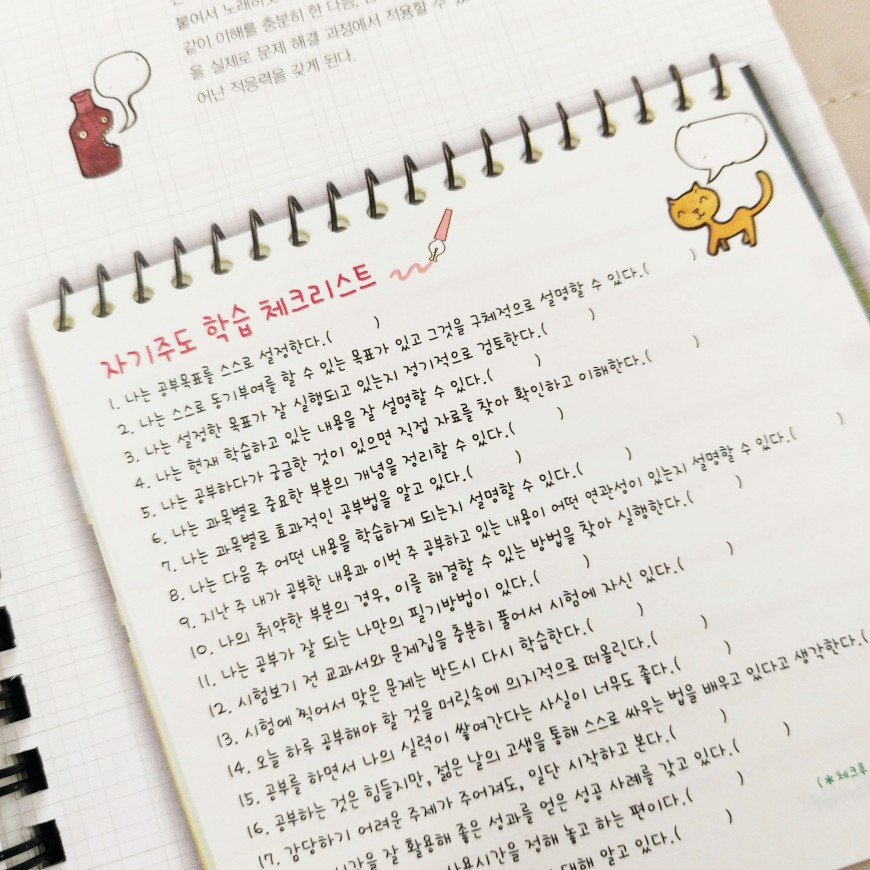 붙여서 노래하듯
같이 이해를 충분히 한 다음,
을 실제로 문제 해결 과정에서 적용할 수 있
어난 적응력을 갖게 된다.
자기주도 학습 체크리스트
1. 나는 공부목표를 스스로 설정한다.( )
2. 나는 스스로 동기부여를 할 수 있는 목표가 있고 그것을 구체적으로 설명할 수 있다.( )
3. 나는 설정한 목표가 잘 실행되고 있는지 정기적으로 검토한다.( )
4. 나는 현재 학습하고 있는 내용을 잘 설명할 수 있다.( )
5. 나는 공부하다가 궁금한 것이 있으면 직접 자료를 찾아 확인하고 이해한다.( )
6. 나는 과목별로 중요한 부분의 개념을 정리할 수 있다.( )
7. 나는 과목별로 효과적인 공부법을 알고 있다.( )
8. 나는 다음 주 어떤 내용을 학습하게 되는지 설명할 수 있다.( )
9. 지난 주 내가 공부한 내용과 이번 주 공부하고 있는 내용이 어떤 연관성이 있는지 설명할 수 있다.( )
10. 나의 취약한 부분의 경우, 이를 해결할 수 있는 방법을 찾아 실행한다.( )
11. 나는 공부가 잘 되는 나만의 필기방법이 있다.( )
12. 시험보기 전 교과서와 문제집을 충분히 풀어서 시험에 자신 있다.( )
13. 시험에 찍어서 맞은 문제는 반드시 다시 학습한다.( )
14. 오늘 하루 공부해야 할 것을 머릿속에 의지적으로 떠올린다.( )
15. 공부를 하면서 나의 실력이 쌓여간다는 사실이 너무도 좋다.( )
16. 공부하는 것은 힘들지만, 젊은 날의 고생을 통해 스스로 싸우는 법을 배우고 있다고 생각한다.(
17. 감당하기 어려운 주제가 주어져도, 일단 시작하고 본다.( )
시간을 잘 활용해 좋은 성과를 얻은 성공 사례를 갖고 있다.( )
사용시간을 정해 놓고 하는 편이다.( )
대해 알고 있다.( )
(*체크후